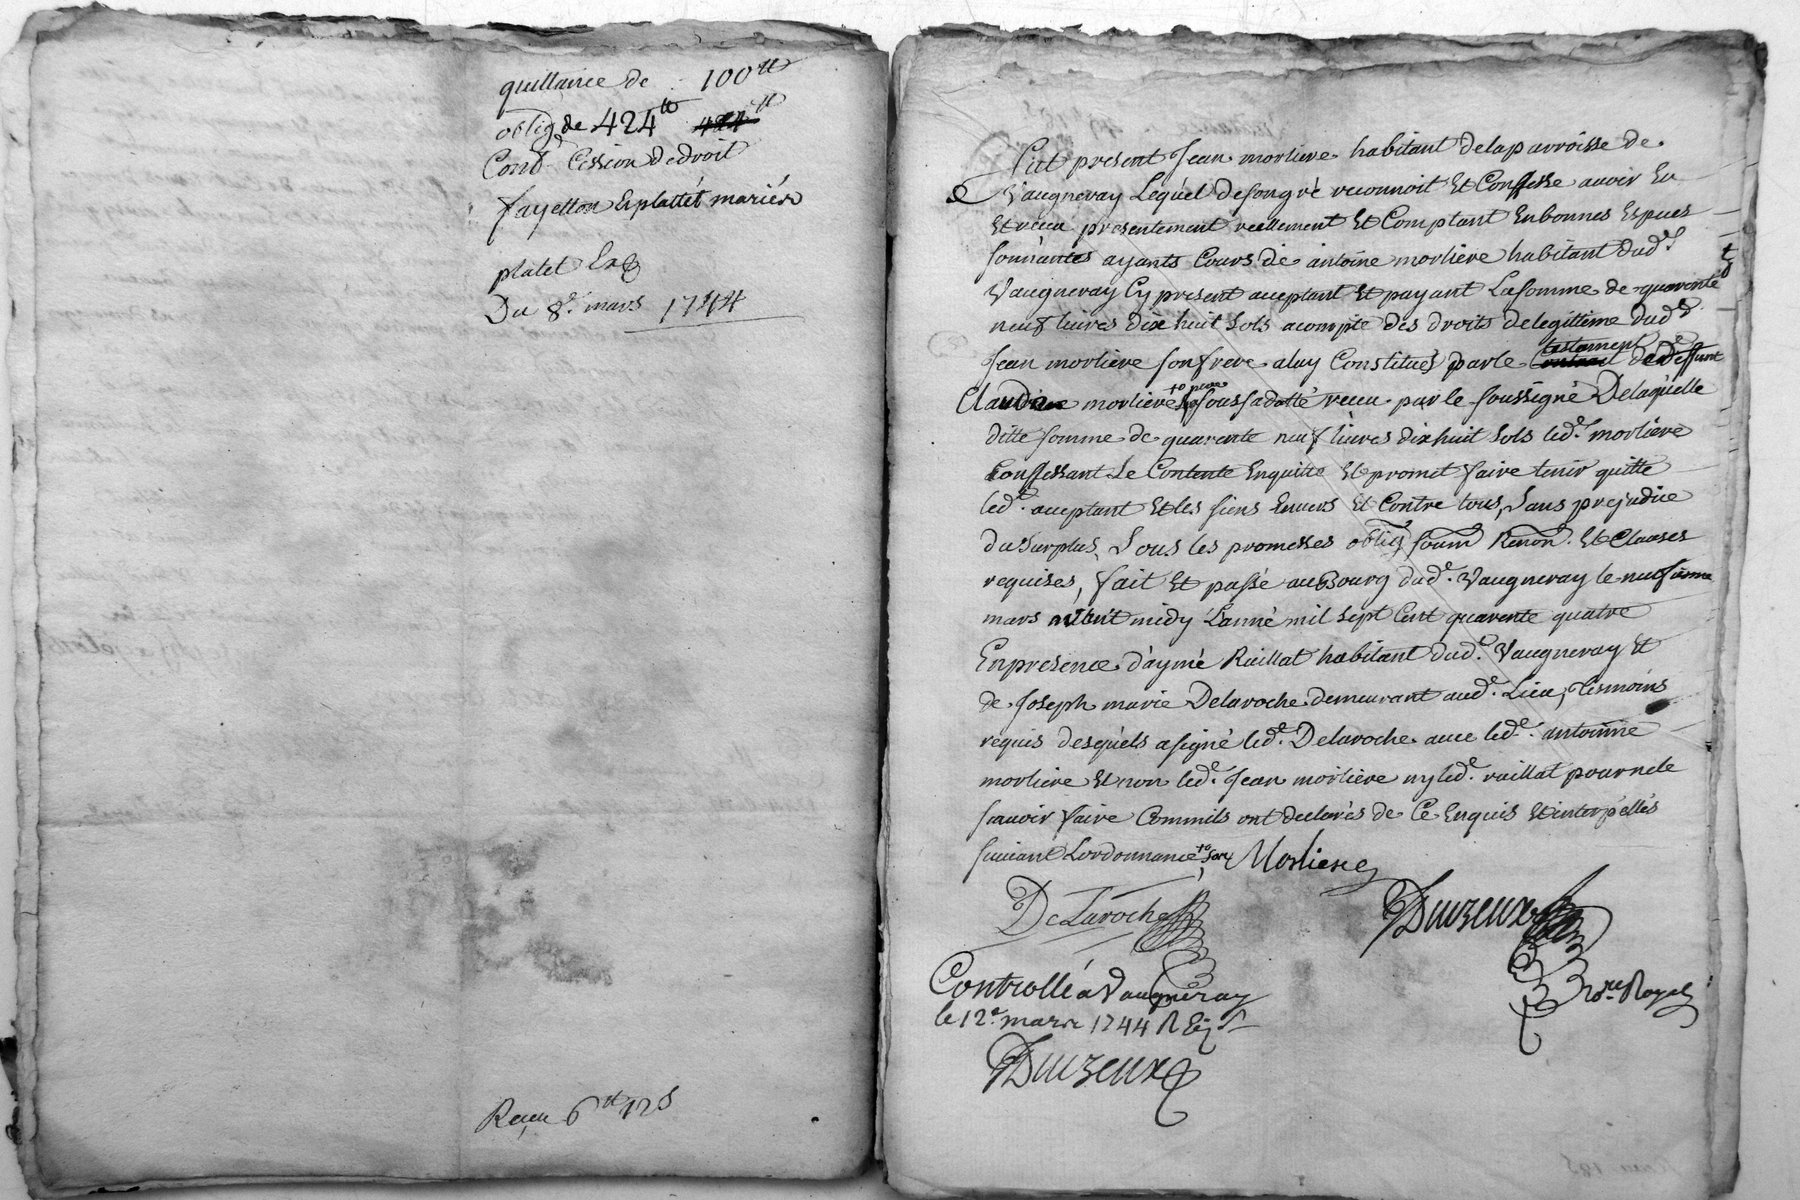 quittance de 100tt
oblig de 424tt 424tt
Cont Cession de droit
fayetton & plattet mariés
platet
Du 8e. mars 1744
Receu 6tt 12s
fut present Jean morliere habitant de la parroisse de
Vaugneray Lequel de son gré reconnoit Et Confesse avoir Eu
Et receu presentement reellement Et Comptant En bonnes Especes
sonnantes ayants Cours de antoine morliere habitant dud.
Vaugneray Cy present aceptant Et payant La somme de quarente
neuf livres dix huit sols acompte des droits de legittime dud.
Jean morliere son frere a luy Constitués par le Contract testament de deffunt
Claudine morliere pere sous sa datte receu par le soussigné De laquelle
ditte somme de quarente neuf livres dix huit sols led. morliere
Confessant se Contente En quitte Et promet faire tenir quitte
led. aceptant Et les siens Envers Et Contre tous, Sans prejudice
du surplus, Sous les promesses oblig soum Renon. Et Clauses
requises, fait Et passé au Bourg dud. Vaugneray le neufieme
mars avant midy L'anné mil sept Cent quarente quatre
En presence d'aymé Raillat habitant dud. Vaugneray Et
de Joseph marie Delaroche demeurant aud. Lieu, Tesmoins
requis desquels a signé led. Delaroche avec led. antoinne
morliere Et non led. Jean morliere ny led. raillat pour ne le
scavoir faire Comm'ils ont declarés de Ce Enquis Et interpellés
suivant Lordonnance Morliere
De Laroche
Duvzeux
nore Royal
Controllé a Vaugneray
le 12e mars 1744 R
Duvzeux